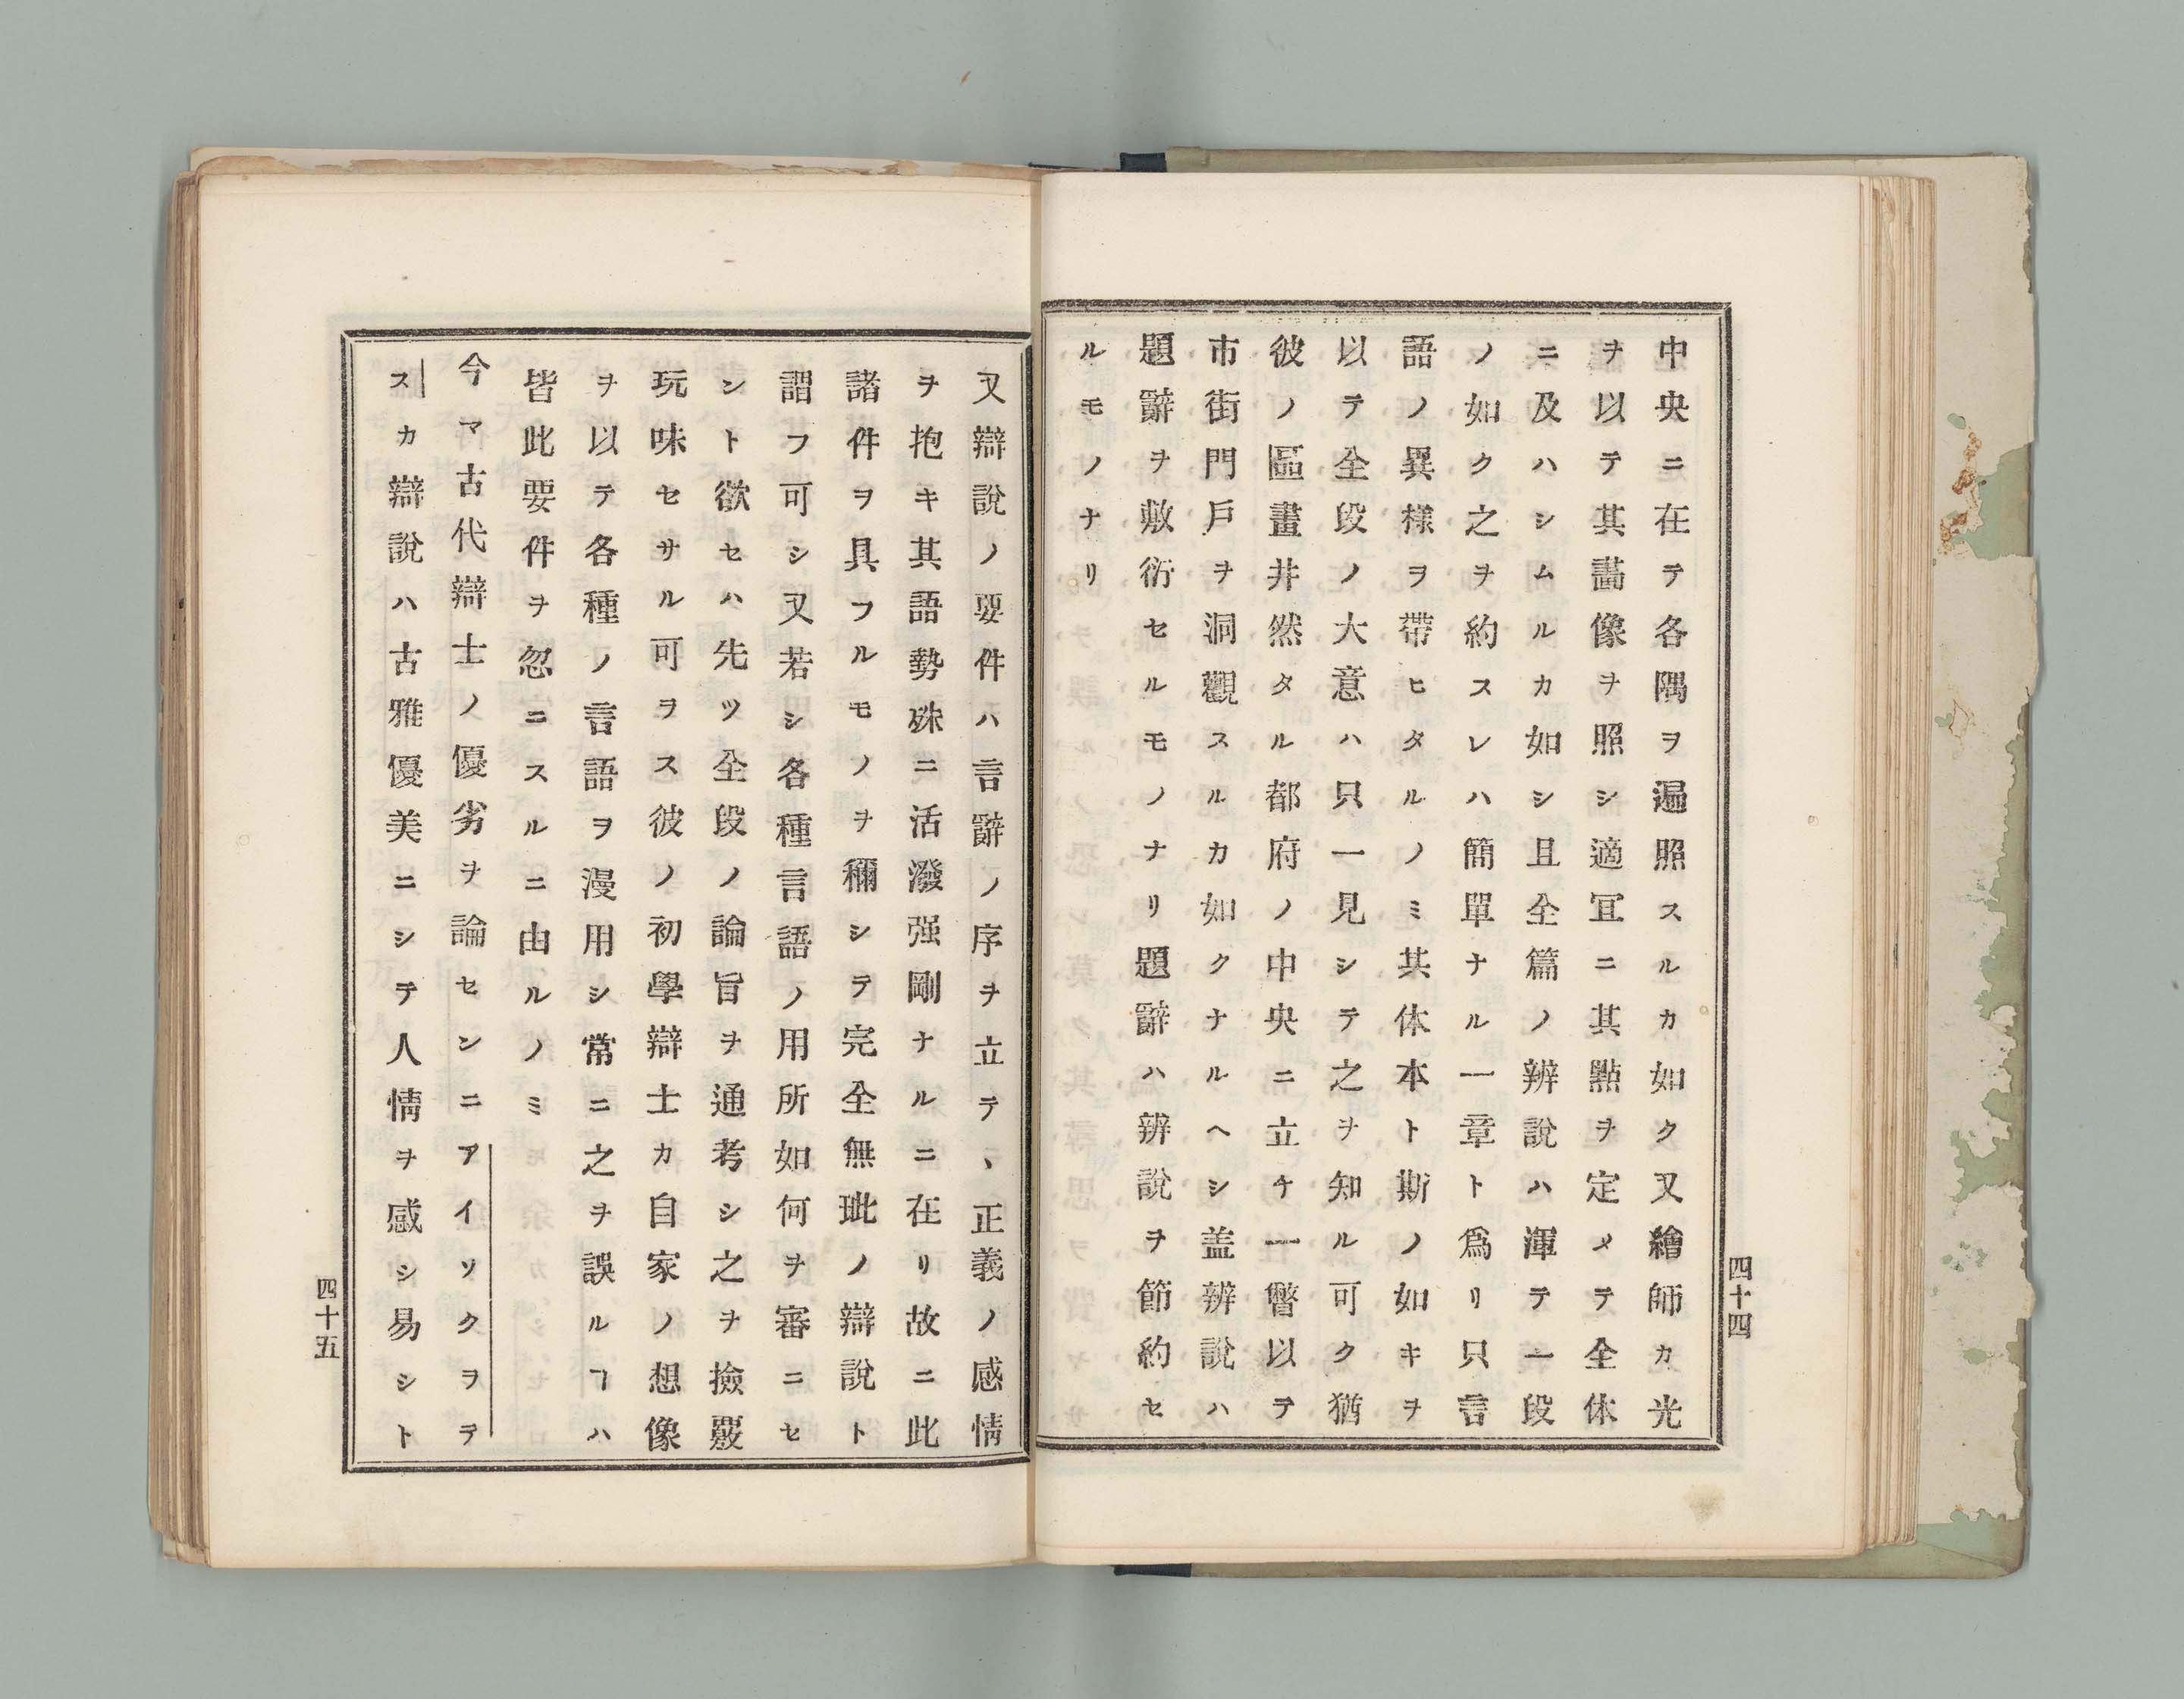 中央ニ在テ各隅ヲ遍照スルカ如ク又繪師カ光
ヲ以テ其畵像ヲ照シ適冝ニ其點ヲ定メテ全体
ニ及ハシムルカ如シ且全篇ノ辨說ハ渾テ一段
ノ如ク之ヲ約スレハ簡單ナル一章ト爲リ只言
語ノ異樣ヲ帶ヒタルノミ其体本ト斯ノ如キヲ
以テ全段ノ大意ハ只一見シテ之ヲ知ル可ク猶
彼ノ區畫井然タル都府ノ中央ニ立チ一瞥以テ
市街門戶ヲ洞觀スルカ如クナルヘシ盖辨說ハ
題辭ヲ敷衍セルモノナリ題辭ハ辨說ヲ節約セ
ルモノナリ
四十四
又辯說ノ要件ハ言辭ノ序ヲ立テヽ正義ノ感情
ヲ抱キ其語勢殊ニ活潑强剛ナルニ在リ故ニ此
諸件ヲ具フルモノヲ稱シテ完全無玼ノ辯說ト
謂フ可シ又若シ各種言語ノ用所如何ヲ審ニセ
ント欲セハ先ツ全段ノ論旨ヲ通考シ之ヲ撿覈
玩味セサル可ヲス彼ノ初學辯士カ自家ノ想像
ヲ以テ各種ノ言語ヲ漫用シ常ニ之ヲ誤ルヿハ
皆此要件ヲ忽ニスルニ由ルノミ
今マ古代辯士ノ優劣ヲ論センニアイソクヲテ
スカ辯說ハ古雅優美ニシテ人情ヲ感シ易シト
四十五